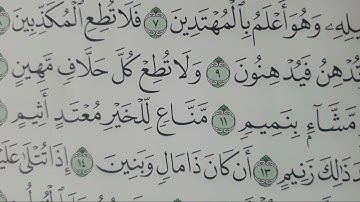 يلِهِۦ وَهُوَ أَعْلَمُ بِٱلْمُهْتَدِينَ ٧ فَلَا تُطِعِ ٱلْمُكَذِّبِينَ
تُدْهِنُ فَيُدْهِنُونَ ٩ وَلَا تُطِعْ كُلَّ حَلَّافٍ مَّهِينٍ
مَّشَّآءٍۭ بِنَمِيمٍ ١١ مَّنَّاعٍ لِّلْخَيْرِ مُعْتَدٍ أَثِيمٍ
دَ ذَٰلِكَ زَنِيمٍ ١٣ أَن كَانَ ذَا مَالٍ وَبَنِينَ ١٤ إِذَا تُتْلَىٰ عَلَيْ